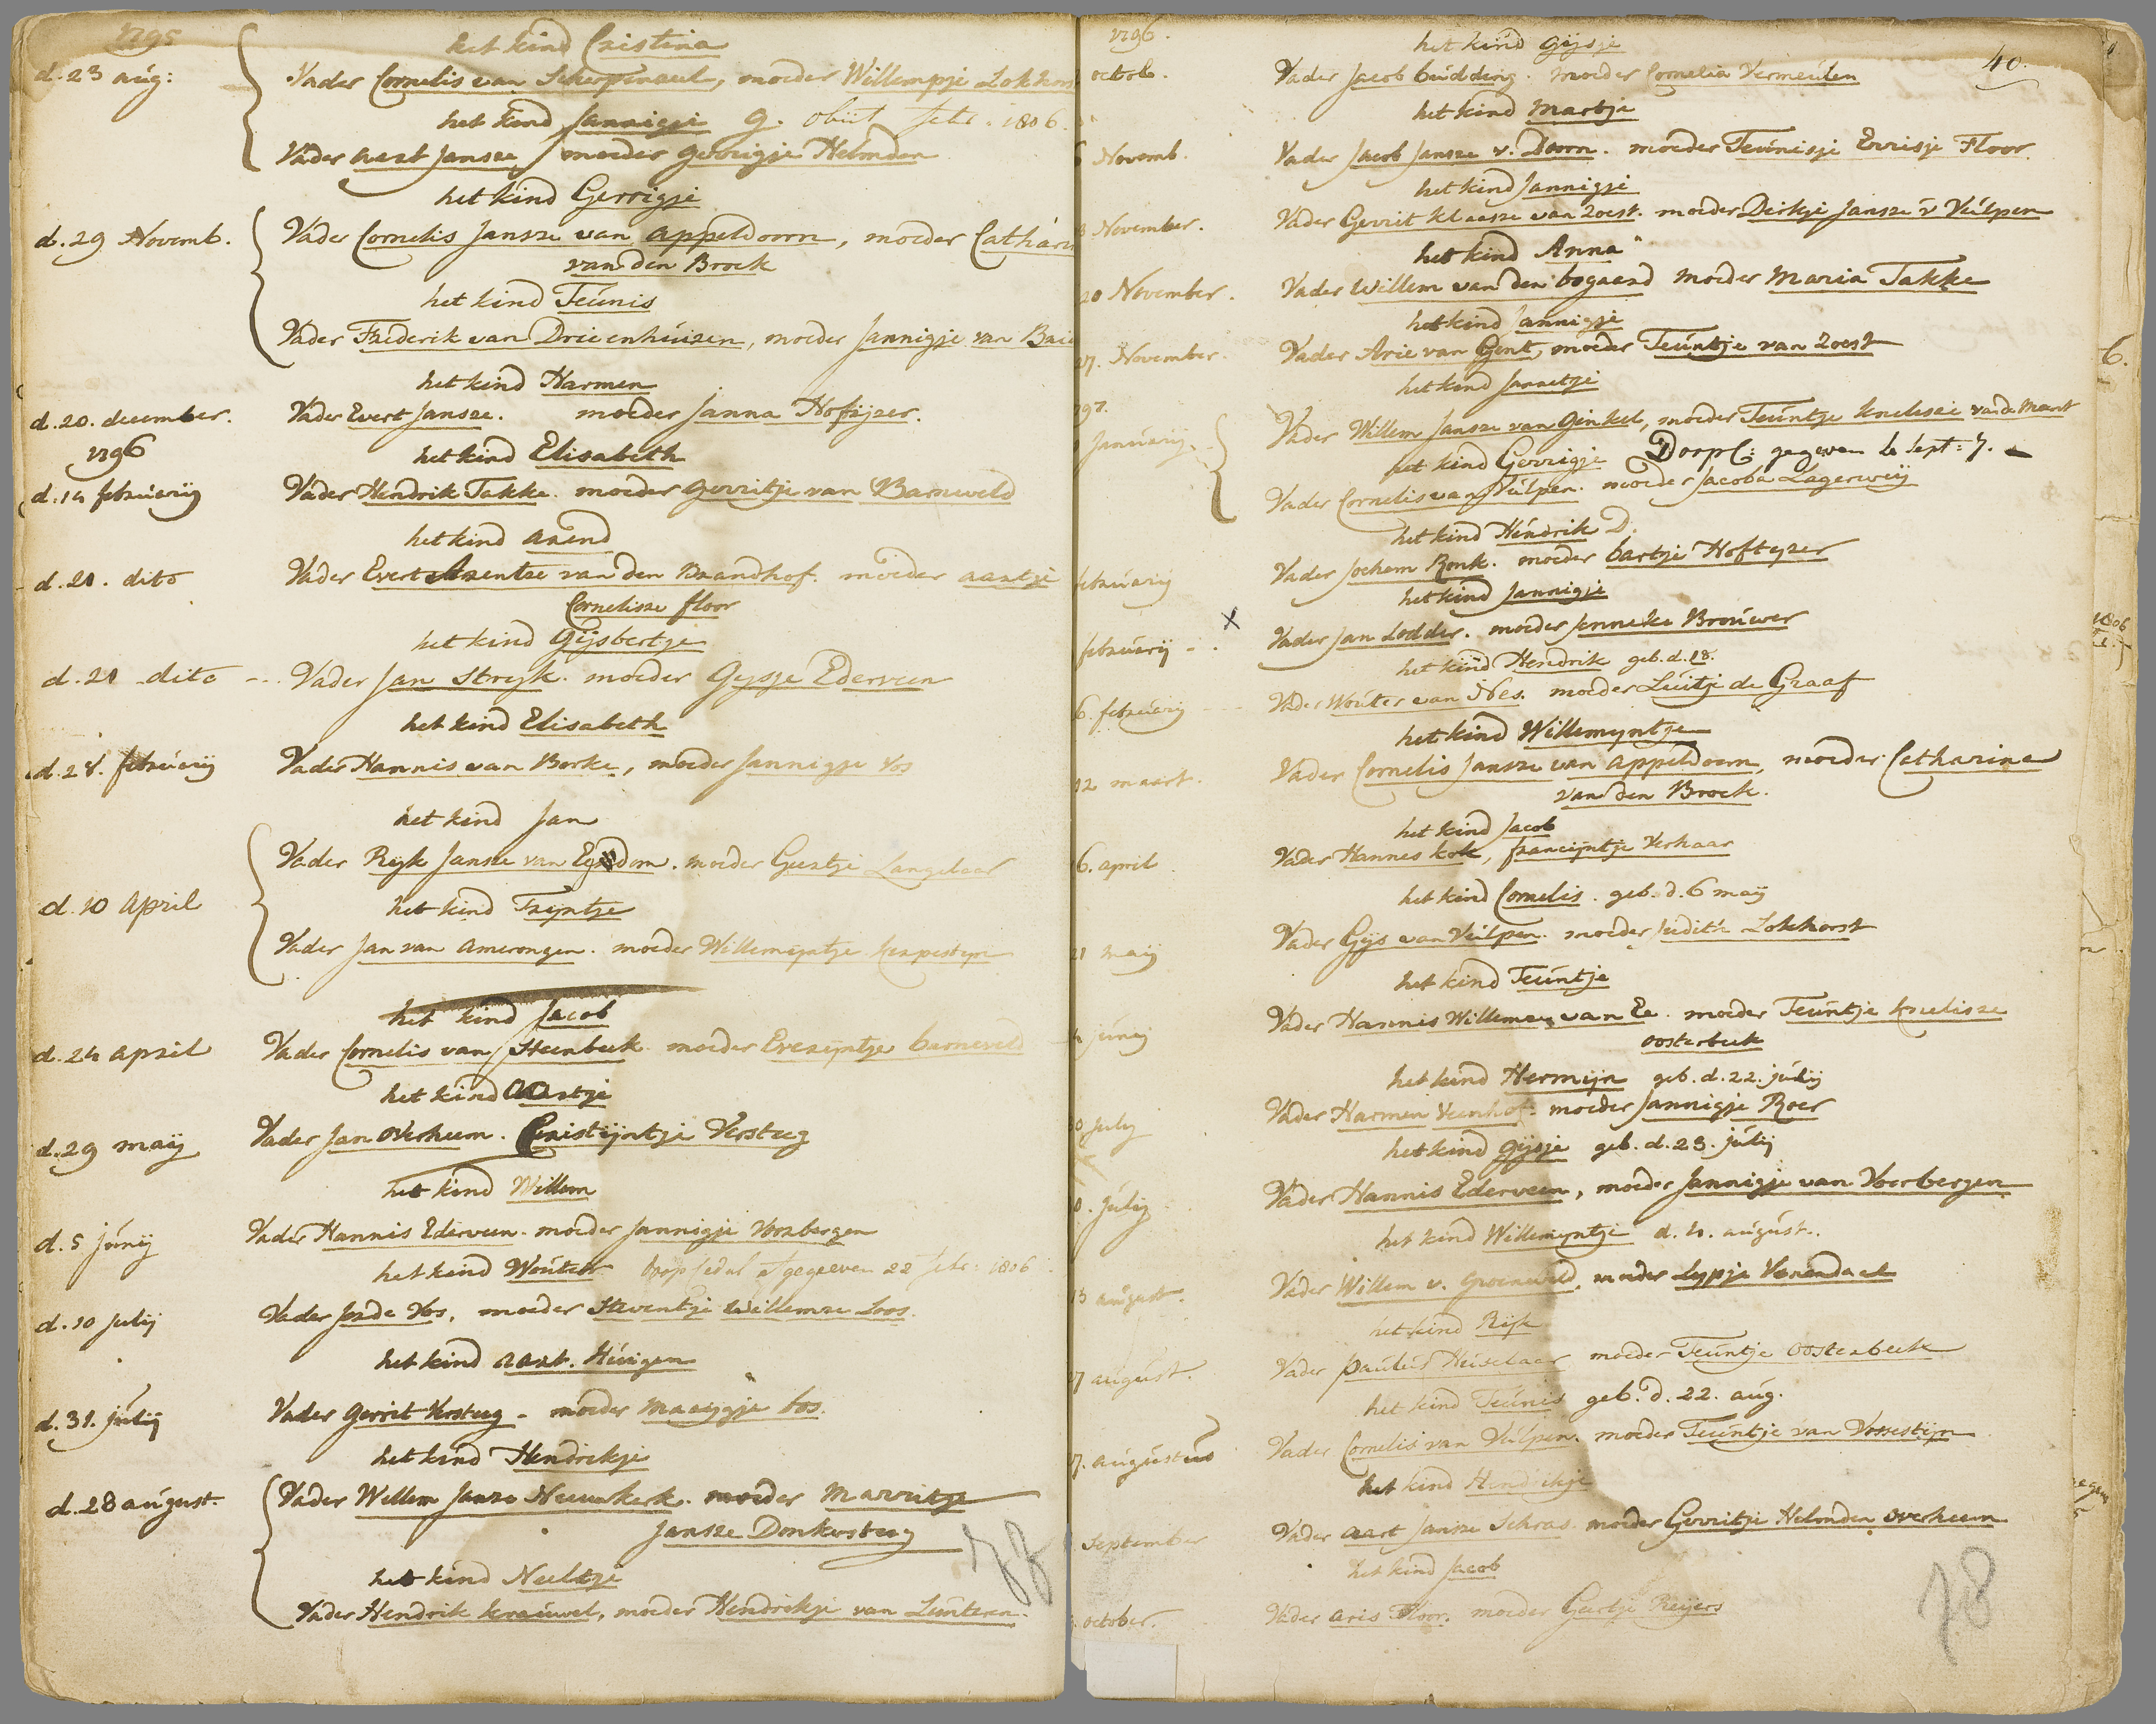 1795
het kind Cristina
d. 23 aug: Vader Cornelis van Scherpenzeel, moeder Willempje Lokhors
het kind Jannigje g. obiit febr. 1806.
Vader aart Janse, moeder gerrigje Helonden
het kind Gerrigje
d. 29 Novemb. Vader Cornelis Jansze van appeldoorn, moeder Catharin
van den Broek
het kind Teúnis
Vader Frederik van Drieenhúizen, moeder Jannigje van
het kind Harmen
d. 20. december. Vader Evert Jansze. moeder Janna Hofsijzer.
1796
het kind Elisabeth
d. 14 febrúarij Vader Hendrik Takke. moeder gerritje van Barneveld
het kind arend
d. 21. dito Vader Evert Arentze van den Brandhof. moeder aartje
Cornelisze floor
het kind Gijsbertje
d. 21 dito -- Vader Jan Strijk. moeder Gijsje Ederveen
het kind Elisabeth
d. 28. febrúarij Vader Hannis van Borke, moeder Jannigje Vos
het kind Jan
Vader Rijk Jansze van Egdom. moeder Geertje Langelaar
d. 10 April het kind Trijntje
Vader Jan van Amerongen. moeder Willemijntje
het kind Jacob
d. 24 april Vader Cornelis van Steenbeek moeder Everijntje barneveld
het kind Aartje
d. 29 maij Vader Jan Overheem. Cristijntje Versteeg
het kind Willem
d. 5 júnij Vader Hannis Ederveen. moeder Jannigje Voorbergen
het kind Woúter. doop Cedul afgegeeven 22 febr: 1806
d. 10 julij Vader Jan de Vos, moeder Steventje Willemze Loos.
het kind aart. Húigen
d. 31. júlij Vader gerrit Versteeg - moeder Maaijgje bos.
het kind Hendrikje
d. 28 aúgúst. Vader Willem Janze Nieuwkerk. moeder Marritje
Jansze Donkersteeg
het kind Neeltje
Vader Hendrik kraúwel, moeder Hendrikje van Lúnteren.
78
1796.
40.
het kind gijsje
octob. Vader Jacob búdding. moeder Cornelia Vermeúlen
het kind Martje
Novemb. Vader Jacob Jansze v. Doorn. moeder Teúnisje Evrisje Floor
het kind Jannigje
November. Vader Gerrit klaasze van Zoest. moeder Dirkje Jansze v Vúlpen
het kind Anna
20 November. Vader Willem van den bogaard moeder Maria Takke
het kind Jannigje
27. November. Vader Arie van Gent, moeder Teúntje van Zoest
het kind Jannetje
797.
Janúarij. Vader Willem Jansze van Ginkel, moeder Teúntje knelisze van de Mant
het kind Gerrigje Doopc: gegeven de Sept: 7.
Vader Cornelis van Vúlpen. moeder Jacoba Lagerweij
het kind Hendrik D.
febrúarij Vader Jochem Ronk. moeder bartje Hofteyzer
het kind Jannigje
febrúarij - . x Vader Jan Lodder. moeder Jenneke Broúwer
het kind Hendrik geb. d. 18.
6. febrúarij Vader Woúter van Nes. moeder Luitje de Graaf
het kind Willemijntje
12 maart. Vader Cornelis Jansze van appeldoorn, moeder Catharina
van den Broek.
het kind Jacob
6. april Vader Hannes kok, francijntje Verhaar
het kind Cornelis. geb. d. 6 maij
21 maij Vader Gijs van Vúlpen. moeder Judith Lokhorst
het kind Teúntje
júnij Vader Hannis Willemze van Ee. moeder Teúntje knelisze
oosterbeek
het kind Hermijn geb. d. 22. júlij
30 july Vader Harmen Veenhof. moeder Jannigje Roer
het kind gijsje geb. d. 23. júlij
0. júlij Vader Hannis Ederveen, moeder Jannigje van Voorbergen
het kind Willemijntje d. 4. aúgúst.
13 aúgust. Vader Willem v. Groeneveld, moeder Lypje Venendaal
het kind Rijk
27 aúgúst. Vader paúlús Húiselaar moeder Teúntje Oosterbeek
het kind Teúnis geb. d. 22. aúg.
27. aúgústús Vader Cornelis van Vúlpen. moeder Teúntje van Vossestijn
het kind Hendrikje
September Vader aart Janze Schras. moeder Gerritje Helonden overheem
het kind Jacob
october. Vader aris Floor. moeder Geertje Reijers
78